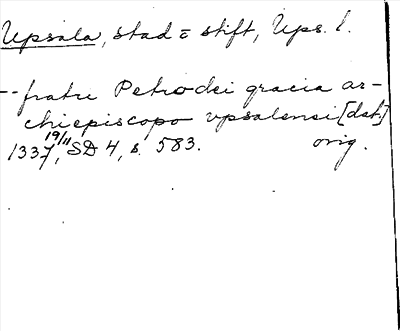 Upsala, stad o stift, Ups. l.
-- fratre Petro dei gracia ar-
chiepiscopo vpsalensi [dat.]
1337 19/11, SD 4, s. 583. orig.